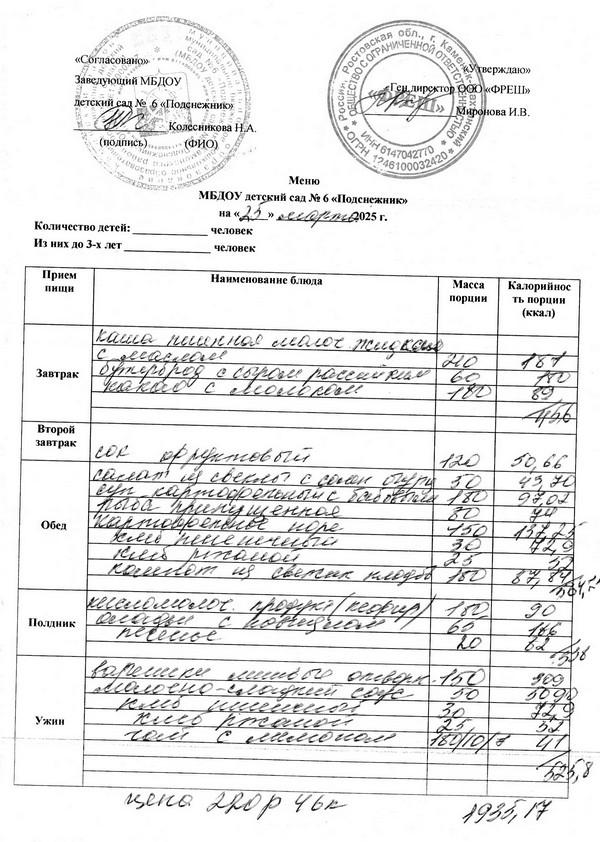 «Согласовано»
Заведующий МБДОУ
детский сад № 6 «Подснежник»
Колесникова Н.А.
(подпись) (ФИО)
«Утверждаю»
Ген.директор ООО «ФРЕШ»
Миронова И.В.
Россия, Ростовская обл., г. Каменск-Шахтинский
ОБЩЕСТВО С ОГРАНИЧЕННОЙ ОТВЕТСТВЕННОСТЬЮ
ИНН 6147042770
ОГРН 1246100032420
Меню
МБДОУ детский сад № 6 «Подснежник»
на «25» марта 2025 г.
Количество детей: ______________ человек
Из них до 3-х лет ________________ человек
Прием пищи Наименование блюда Масса порции Калорийность порции (ккал)
Завтрак
каша пшенная молоч жидкая
с маслом 210 187
бутерброд с сыром российским 60 180
какао с молоком 180 89
456
Второй завтрак
сок фруктовый 120 50,66
Обед
салат из свеклы с солен огурц 50 43,70
суп картофельный с 180 97,02
рыба припущенная 80 74
картофельное пюре 150 137,25
хлеб пшеничный 30 72,9
хлеб ржаной 25 52
компот из свежих плодов 180 87,84
Полдник
кисломолоч. продукт (кефир) 180 90
оладьи с повидлом 65 186
печенье 20 62
338
Ужин
вареники ленивые отварн. 150 309
молочно-сладкий соус 50
хлеб пшеничный 30 72,9
хлеб ржаной 25 52
чай с лимоном 180/10/7 41
525,8
цена 220р 46к 1935,17